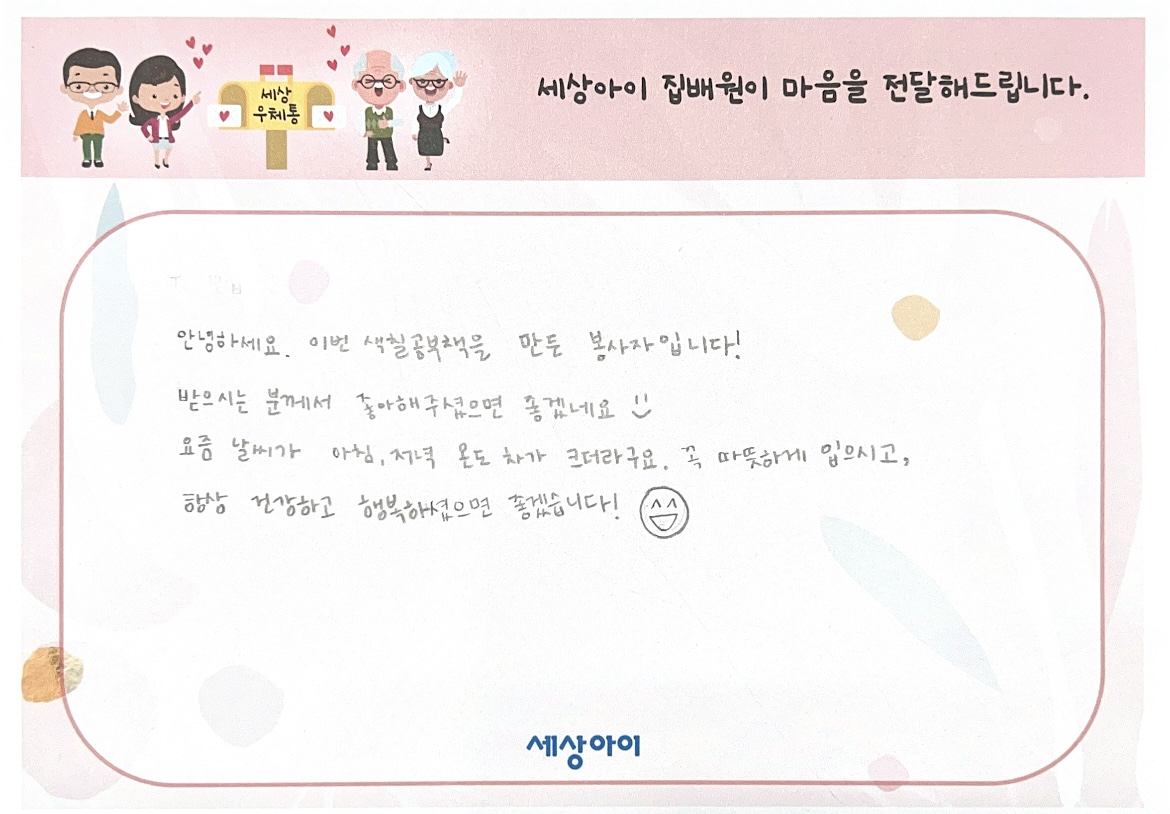 세상아이 집배원이 마음을 전달해드립니다.
세상
우체통
안녕하세요. 이번 색칠공부책을 만든 봉사자입니다!
받으시는 분께서 좋아해주셨으면 좋겠네요 :)
요즘 날씨가 아침, 저녁 온도 차가 크더라구요. 꼭 따뜻하게 입으시고,
항상 건강하고 행복하셨으면 좋겠습니다!
세상아이